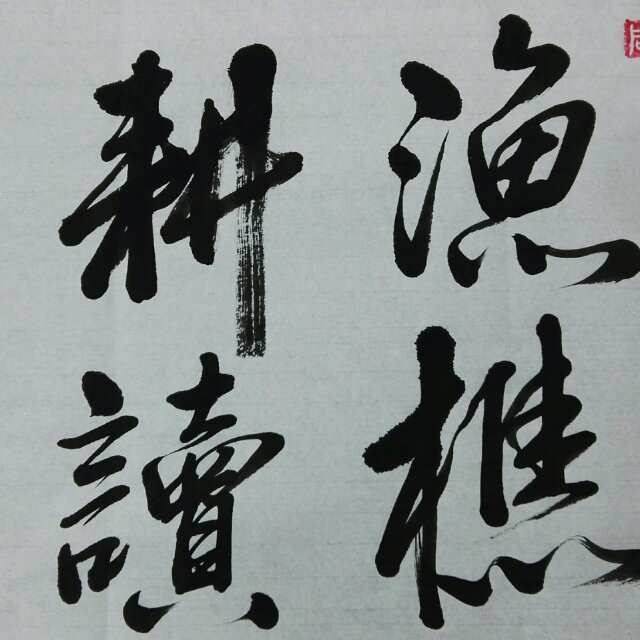 漁樵
耕讀